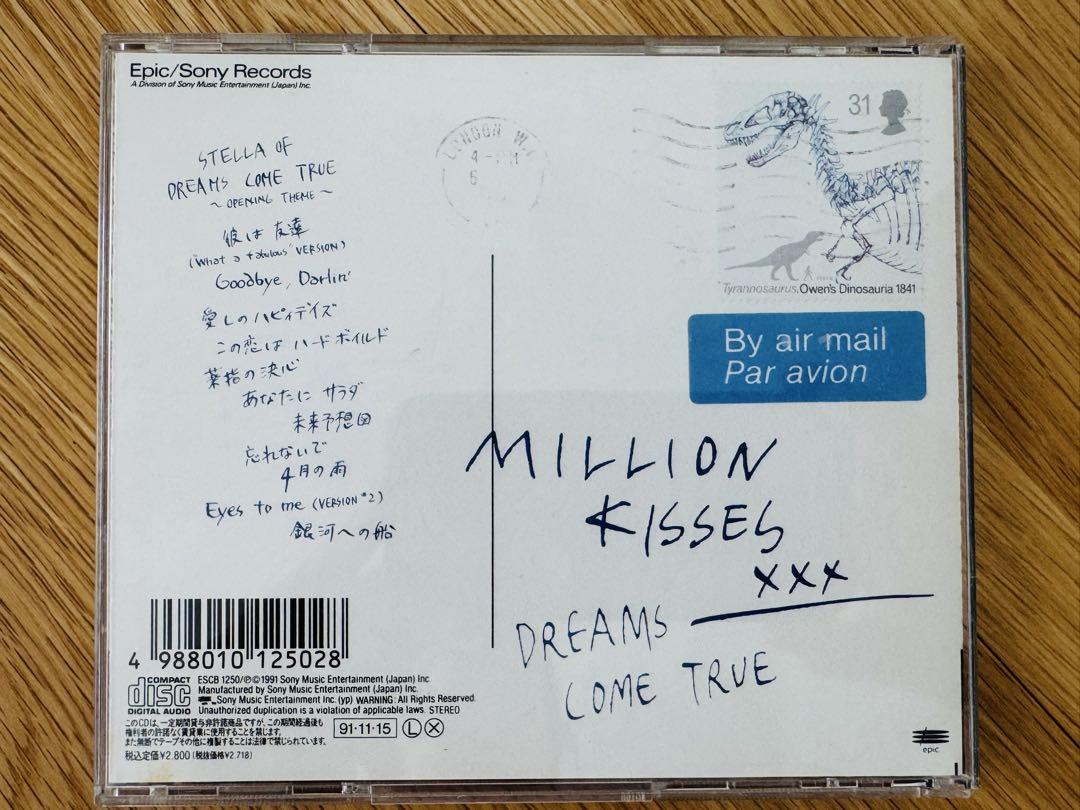 Epic/Sony Records
A Division of Sony Music Entertainment (Japan) Inc.
STELLA OF
DREAMS COME TRUE
～OPENING THEME～
彼は友達
("What a fabulous" VERSION)
Goodbye, Darlin'
愛しのハピィデイズ
この恋はハードボイルド
薬指の決心
あなたにサラダ
未来予想図
忘れないで
4月の雨
Eyes to me (VERSION #2)
銀河への船
LONDON W.
4-
6
31
Tyrannosaurus, Owen's Dinosauria 1841
By air mail
Par avion
MILLION
KISSES
xxx
DREAMS
COME TRUE
4 988010 125028
COMPACT
disc
DIGITAL AUDIO
ESCB 1250/Ⓟ©1991 Sony Music Entertainment (Japan) Inc.
Manufactured by Sony Music Entertainment (Japan) Inc.
Sony Music Entertainment Inc. (yp) WARNING: All Rights Reserved.
Unauthorized duplication is a violation of applicable laws. STEREO
このCDは、一定期間貸与非許諾商品ですが、この期間経過後も
権利者の許諾なく賃貸業に使用することを禁じます。
また無断でテープその他に複製することは法律で禁じられています。
税込定価¥2.800 (税抜価格¥2.718)
91・11・15 Ⓛ Ⓧ
epic